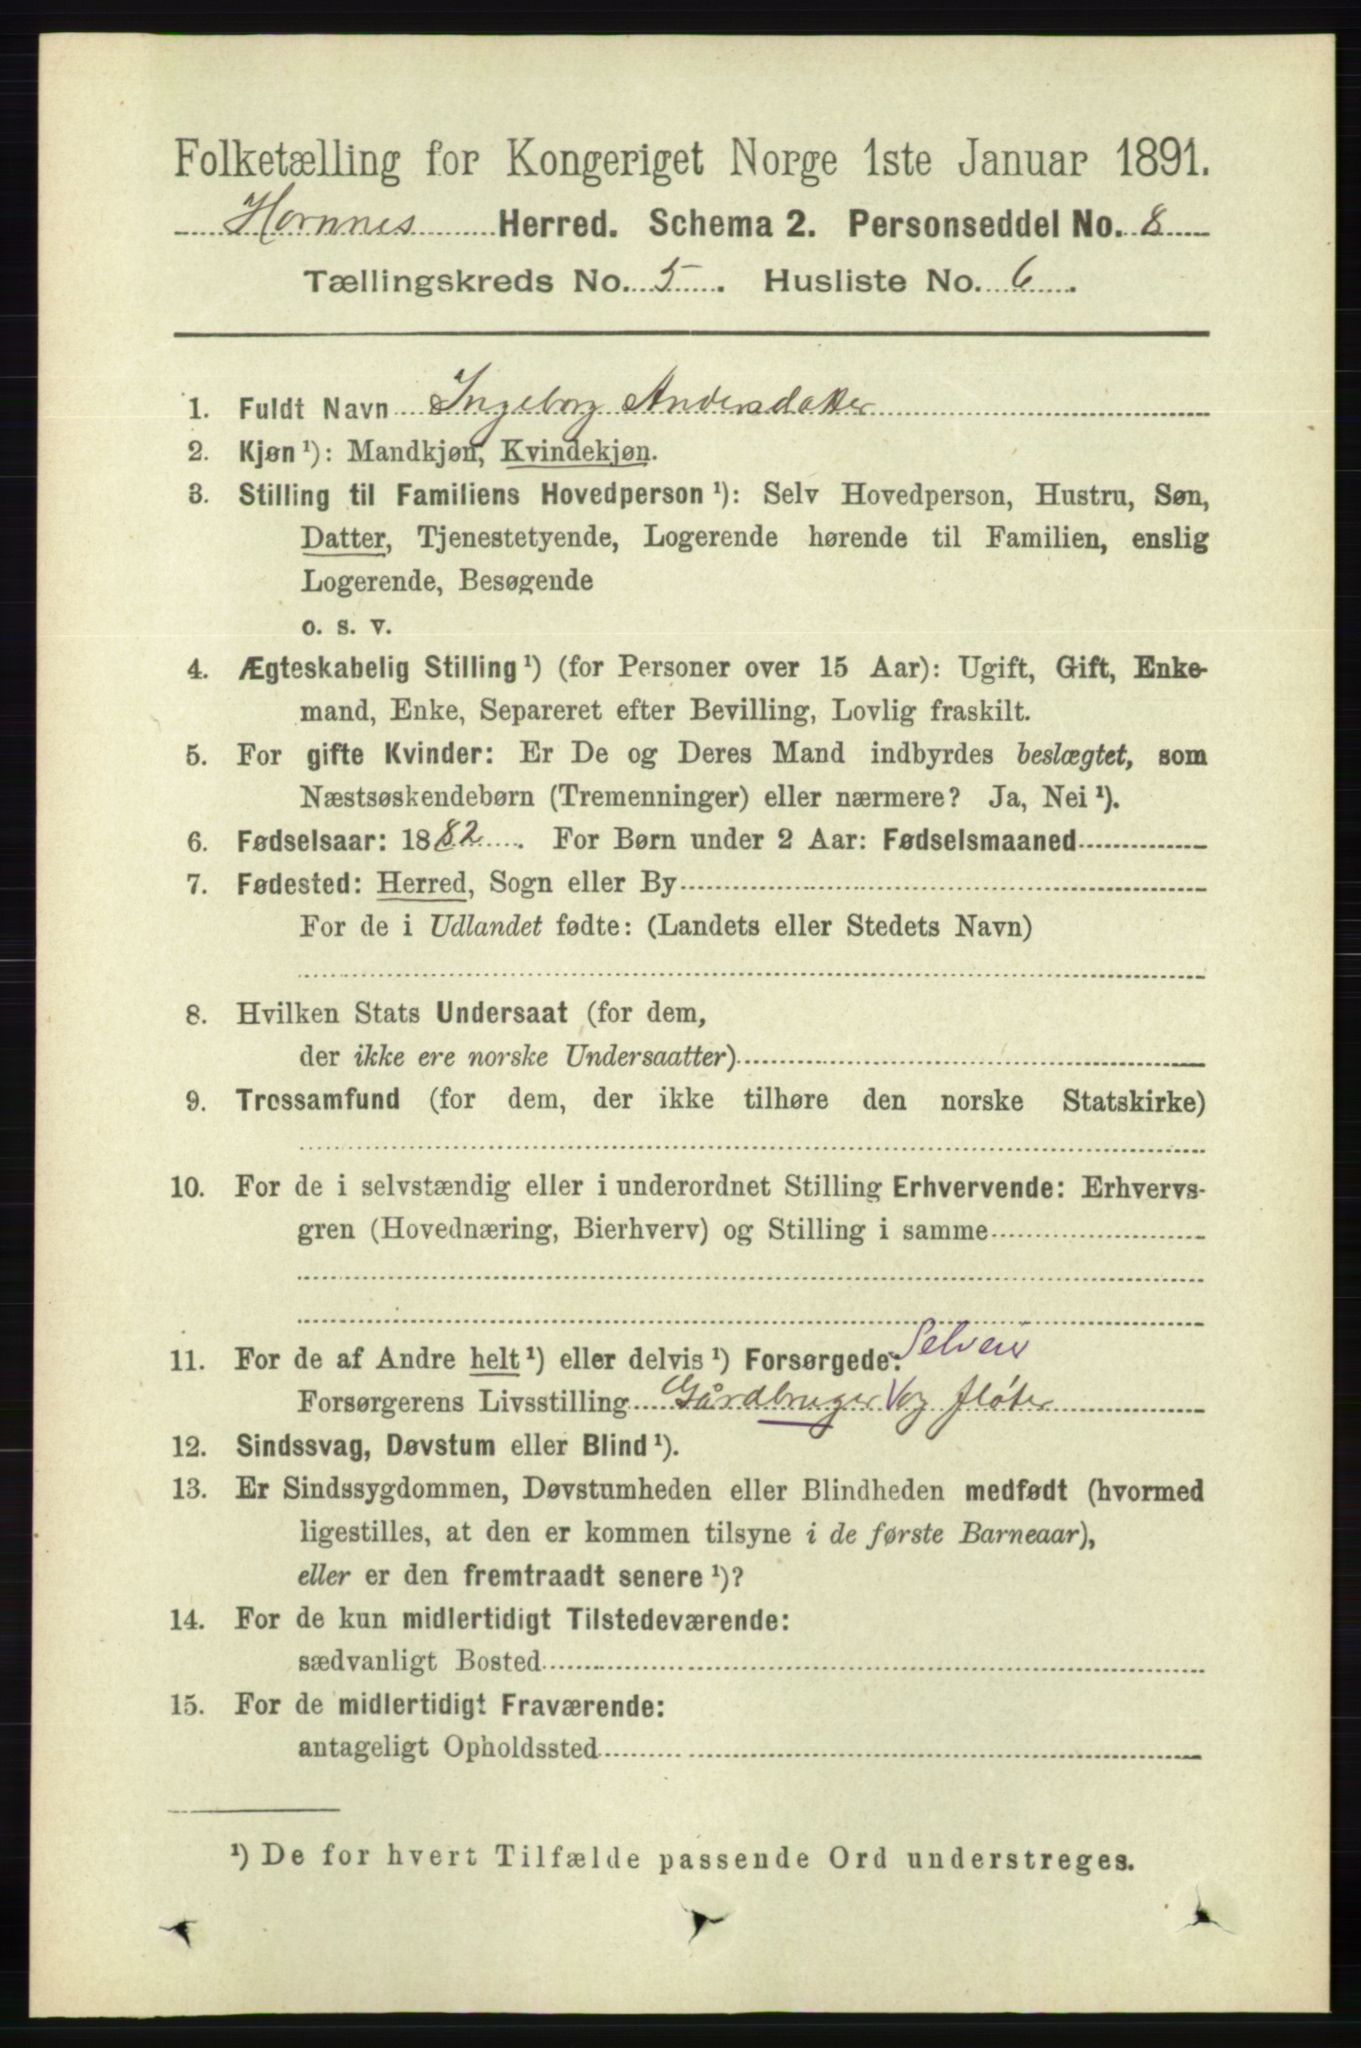 Folketælling for Kongeriget Norge 1ste Januar 1891.
Hornnes Herred. Schema 2. Personseddel No. 8
Tællingskreds No. 5. Husliste No. 6.
1. Fuldt Navn Ingeborg Andersdatter
2. Kjøn ¹): Mandkjøn, Kvindekjøn.
3. Stilling til Familiens Hovedperson ¹): Selv Hovedperson, Hustru, Søn,
Datter, Tjenestetyende, Logerende hørende til Familien, enslig
Logerende, Besøgende
o. s. v.
4. Ægteskabelig Stilling ¹) (for Personer over 15 Aar): Ugift, Gift, Enke-
mand, Enke, Separeret efter Bevilling, Lovlig fraskilt.
5. For gifte Kvinder: Er De og Deres Mand indbyrdes beslægtet, som
Næstsøskendebørn (Tremenninger) eller nærmere? Ja, Nei ¹).
6. Fødselsaar: 1882. For Børn under 2 Aar: Fødselsmaaned
7. Fødested: Herred, Sogn eller By
For de i Udlandet fødte: (Landets eller Stedets Navn)
8. Hvilken Stats Undersaat (for dem,
der ikke ere norske Undersaatter)
9. Trossamfund (for dem, der ikke tilhøre den norske Statskirke)
10. For de i selvstændig eller i underordnet Stilling Erhvervende: Erhvervs-
gren (Hovednæring, Bierhverv) og Stilling i samme
Selveier
11. For de af Andre helt ¹) eller delvis ¹) Forsørgede:
Forsørgerens Livsstilling Gårdbruger og fløter
12. Sindssvag, Døvstum eller Blind ¹).
13. Er Sindssygdommen, Døvstumheden eller Blindheden medfødt (hvormed
ligestilles, at den er kommen tilsyne i de første Barneaar),
eller er den fremtraadt senere ¹)?
14. For de kun midlertidigt Tilstedeværende:
sædvanligt Bosted
15. For de midlertidigt Fraværende:
antageligt Opholdssted
¹) De for hvert Tilfælde passende Ord understreges.